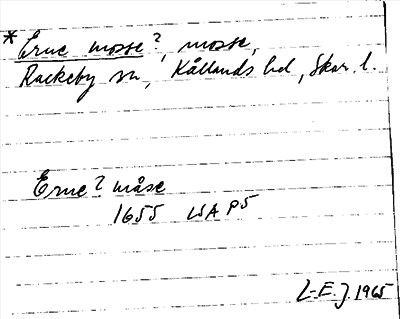 * Erne mosse?, mosse,
Rackeby sn, Kållands hd, Skar. l.
Erne? måse
1655 LSA P5
L-E.J. 1965